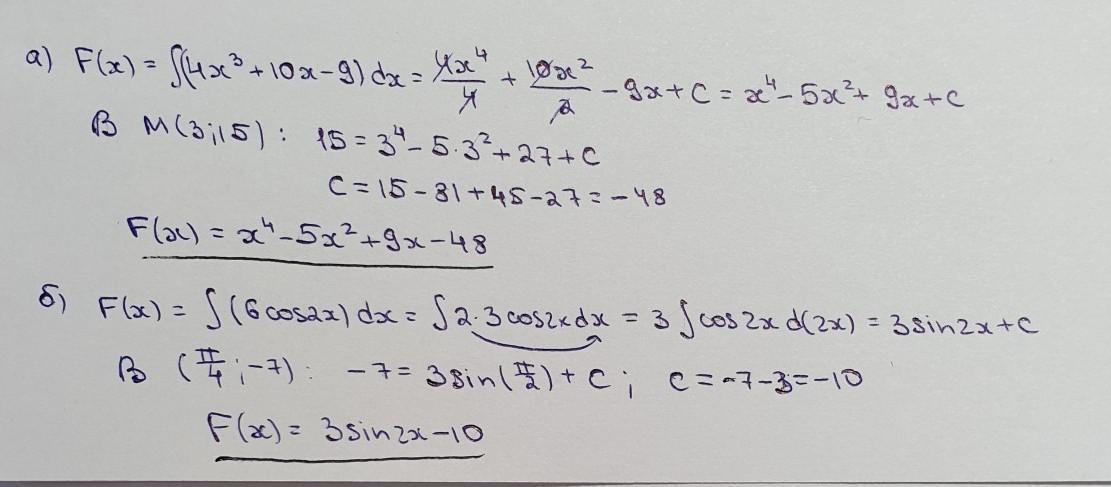 а) F(x) = ∫(4x³+10x-9)dx = 4x⁴/4 + 10x²/2 - 9x+C = x⁴-5x²+ 9x+C
В M(3;15): 15 = 3⁴-5·3²+27+C
C = 15-81+45-27 = -48
F(x) = x⁴-5x²+9x-48
б) F(x) = ∫(6cos2x)dx = ∫2·3cos2xdx = 3∫cos2x d(2x) = 3sin2x+C
В (π/4;-7): -7 = 3sin(π/2)+C; C = -7-3 = -10
F(x) = 3sin2x-10